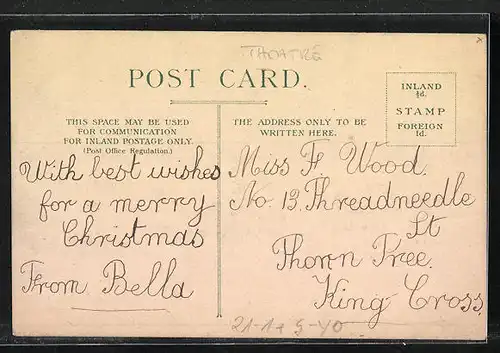 THEATRE
POST CARD.
INLAND
½d.
STAMP
FOREIGN
1d.
THIS SPACE MAY BE USED
FOR COMMUNICATION
FOR INLAND POSTAGE ONLY.
(Post Office Regulation.)
THE ADDRESS ONLY TO BE
WRITTEN HERE.
With best wishes
for a merry
Christmas
From Bella
Miss F. Wood.
No. 13, Threadneedle
St
Thorn Tree.
King Cross.